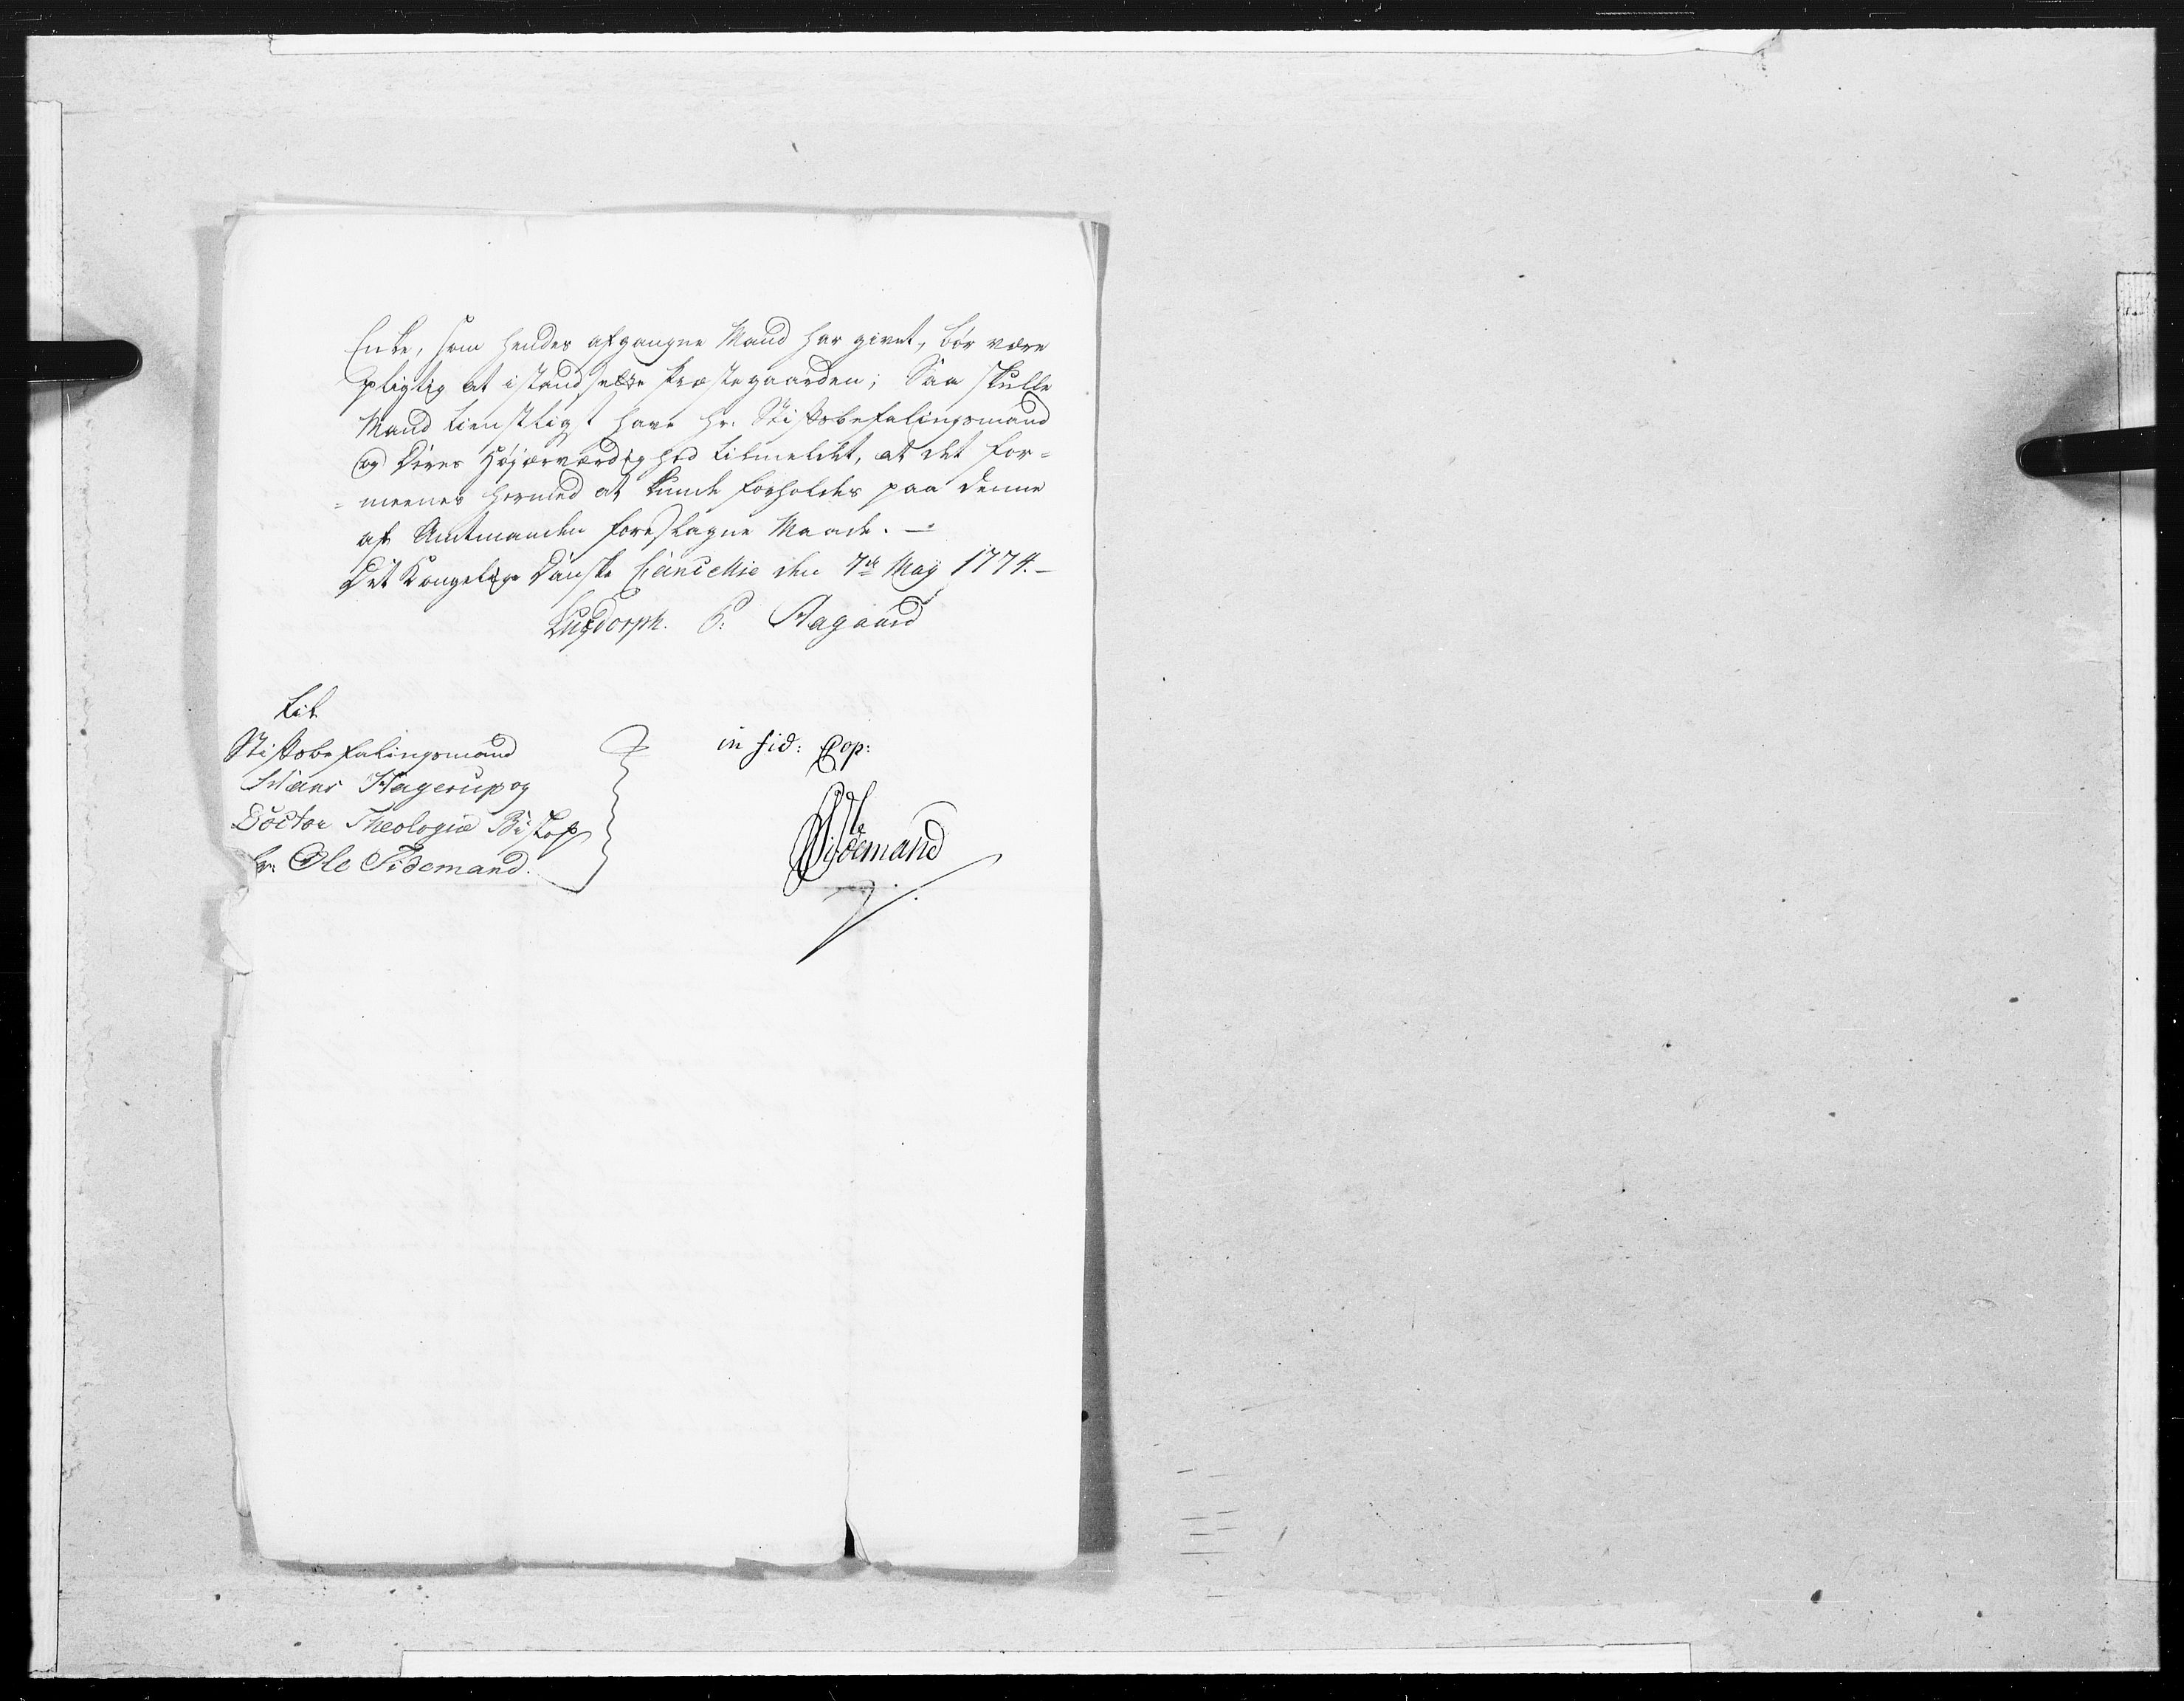 Enke, som hendes afgangne Mand har givet, bør være
pligtig at istandsette Præstegaarden; Saa skulle
Mand tienstligst have Hr. Stiftsbefalingsmand
og Deres Højærværdighed tilmeldet, at det for=
=meenes hermed at kunde forholdes paa denne
af Amtmanden foreslagne Maade. —
Det Kongelige Danske Cancellie den 7de Maÿ 1774. —
Luxdorph. P: Aagaard
Til
Stiftsbefalingsmand
Hans Hagerup og
Doctor Theologiæ Biskop
hr. Ole Tidemand.
in fid: Cop:
O Tidemand